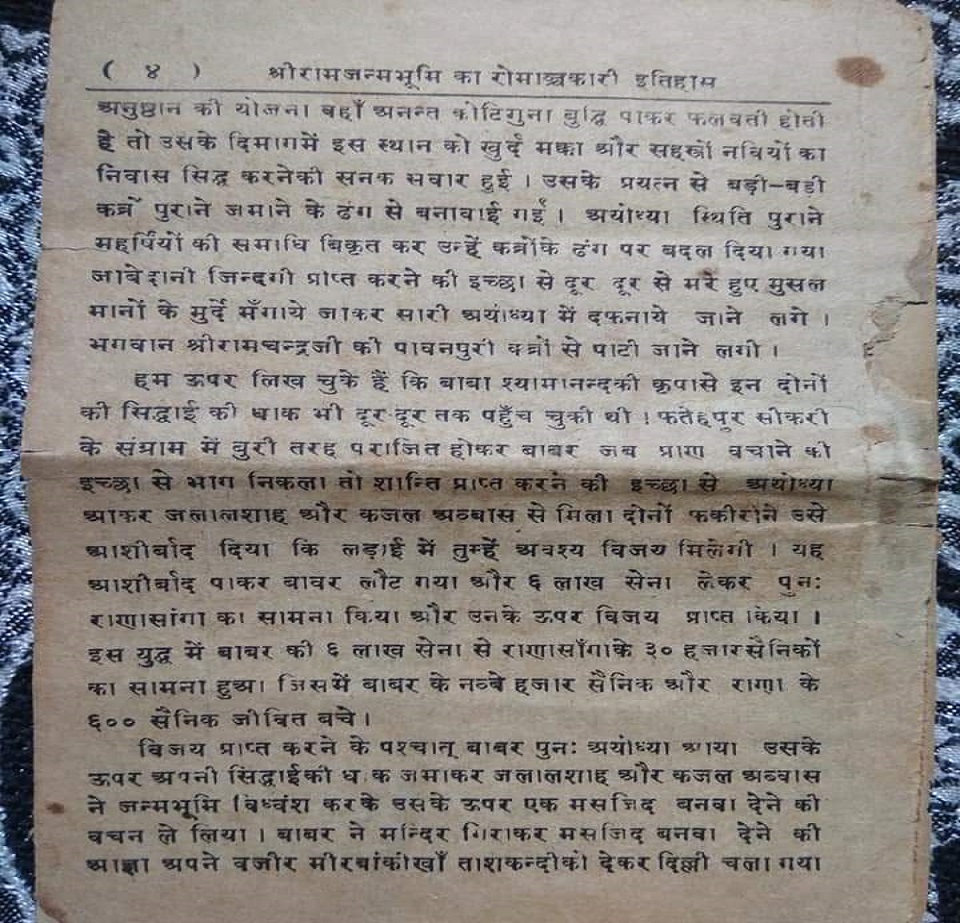 ( ४ ) श्रीरामजन्मभूमि का रोमाञ्चकारी इतिहास
अनुष्ठान की योजना वहाँ अनन्त कोटिगुना बुद्धि पाकर फलवती होती
है तो उसके दिमागमें इस स्थान को खुर्द मक्का और सहस्त्रों नवियों का
निवास सिद्ध करनेकी सनक सवार हुई । उसके प्रयत्न से बड़ी-बडी
कब्रें पुराने जमाने के ढंग से बनावाई गईं । अयोध्या स्थिति पुराने
महर्षियों की समाधि बिकृत कर उन्हें कब्रोंके ढंग पर बदल दिया गया
जाबेदानी जिन्दगी प्राप्त करने की इच्छा से दूर दूर से मरे हुए मुसल
मानों के मुर्दे मँगाये जाकर सारी अयोध्या में दफनाये जाने लगे ।
भगवान श्रीरामचन्द्रजी की पावनपुरी कब्रों से पाटी जाने लगी ।
हम ऊपर लिख चुके हैं कि बाबा श्यामानन्दकी कृपासे इन दोनों
की सिद्धाई की धाक भी दूर-दूर तक पहुँच चुकी थी । फतेहपुर सीकरी
के संग्राम में बुरी तरह पराजित होकर बाबर जब प्राण वचाने की
इच्छा से भाग निकला तो शान्ति प्राप्त करने की इच्छा से अयोध्या
आकर जलालशाह और कजल अब्बास से मिला दोनों फकीरोंने उसे
आशीर्बाद दिया कि लड़ाई में तुम्हें अवश्य विजय मिलेगी । यह
आशीर्बाद पाकर बावर लौट गया और ६ लाख सेना लेकर पुनः
राणासांगा का सामना किया और उनके ऊपर विजय प्राप्त किया ।
इस युद्ध में बाबर की ६ लाख सेना से राणासाँगाके ३० हजारसैनिकों
का सामना हुआ जिसमें बाबर के नव्बे हजार सैनिक और राणा के
६०० सैनिक जीबित बचे ।
विजय प्राप्त करने के पश्चात् बाबर पुनः अयोध्या आया उसके
ऊपर अपनी सिद्धाईकी धाक जमाकर जलालशाह और कजल अब्बास
ने जन्मभूमि विध्वंश करके उसके ऊपर एक मसजिद बनवा देने की
वचन ले लिया । बाबर ने मन्दिर गिराकर मसजिद बनबा देने की
आज्ञा अपने वजीर मीरबांकीखाँ ताशकन्दीको देकर दिल्ली चला गया